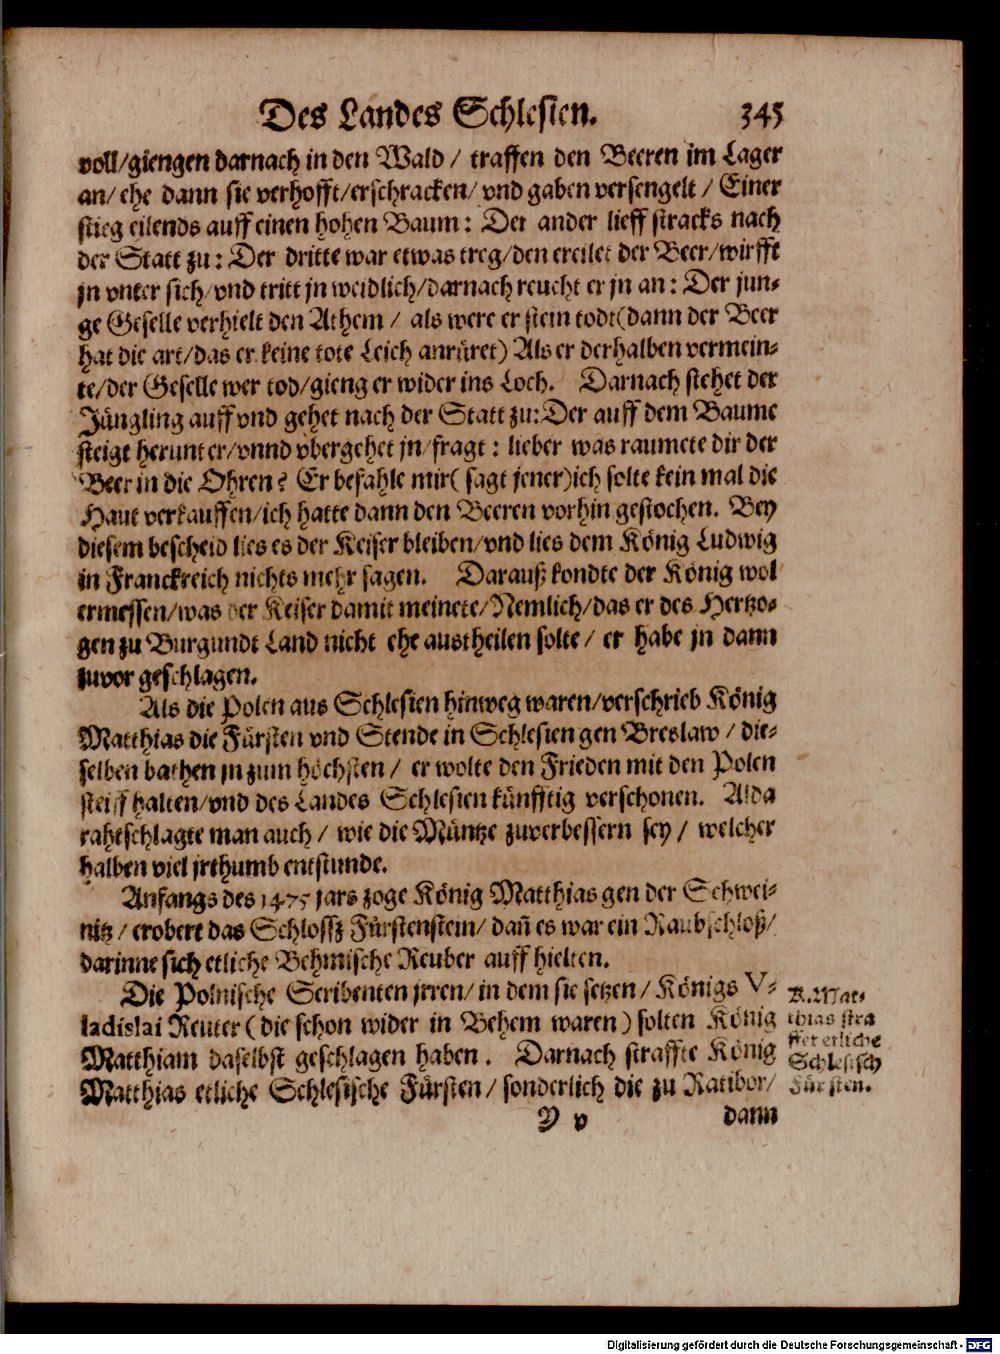 Des Landes Schlesien. 345
voll/giengen darnach in den Wald / traffen den Beeren im Lager
an/ ehe dann sie verhofft/erschracken/ vnd gaben versengelt / Einer
stieg eilends auff einen hohen Baum: Der ander lieff stracks nach
der Statt zu: Der dritte war etwas treg/den ereilet der Beer/wirfft
jn vnter sich/vnd tritt jn weidlich/darnach reucht er jn an: Der jun-
ge Geselle verhielt den Athem / als were er stein todt(dann der Beer
hat die art/das er keine tote Leich anrüret) Als er derhalben vermein-
te/der Geselle wer tod/gieng er wider ins Loch. Darnach stehet der
Jüngling auff vnd gehet nach der Statt zu: Der auff dem Baume
steigt herunter/vnnd vbergehet jn/fragt: lieber was raumete dir der
Beer in die Ohren? Er befahle mir( sagt jener)ich solte kein mal die
Haut verkauffen/ich hatte dann den Beeren vorhin gestochen. Bey
diesem bescheid lies es der Keiser bleiben/vnd lies dem König Ludwig
in Franckreich nichts mehr sagen. Darauß kondte der König wol
ermessen/was der Keiser damit meinete/Nemlich/das er des Hertzo-
gen zu Burgundt Land nicht ehe austheilen solte/ er habe jn dann
zuvor geschlagen.
Als die Polen aus Schlesien hinweg waren/verschrieb König
Matthias die Fürsten vnd Stende in Schlesien gen Breslaw / die-
selben bathen jn zum höchsten / er wolte den Frieden mit den Polen
steiff halten/vnd des Landes Schlesien künfftig verschonen. Alda
rahtschlagte man auch / wie die Müntze zuverbessern sey / welcher
halben viel jrthumb entstunde.
Anfangs des 1475 jars zoge König Matthias gen der Schwei-
nitz / erobert das Schlossz Fürstenstein/ dañ es war ein Raubschloß/
darinne sich etliche Behmische Reuber auff hielten.
Die Polnische Scribenten jrren/ in dem sie setzen / Königs V-
ladislai Reuter ( die schon wider in Behem waren ) solten König
Matthiam daselbst geschlagen haben. Darnach straffte König
Matthias etliche Schlesische Fürsten/ sonderlich die zu Ratibor/
K. Mat-
thias stra
ffet etliche
Schlesisch
Fürsten.
Y v dann
Digitalisierung gefördert durch die Deutsche Forschungsgemeinschaft - DFG